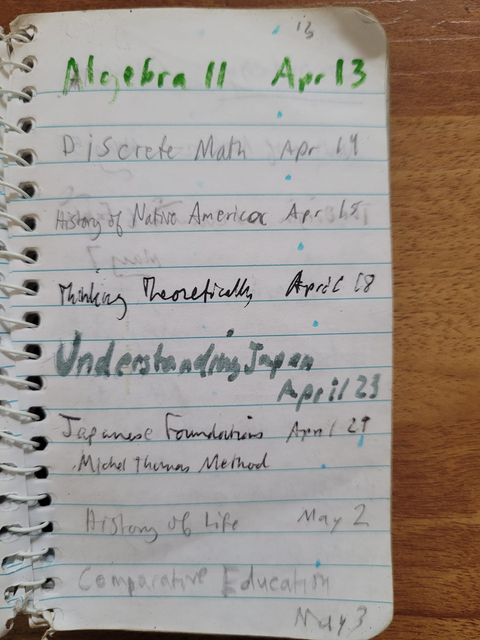 13
Algebra II Apr 13
Discrete Math Apr 14
History of Native America Apr 15
Thinking Theoretically April 18
Understanding Japan
April 23
Japanese Foundations April 29
Michel Thomas Method
History of Life May 2
Comparative Education
May 3